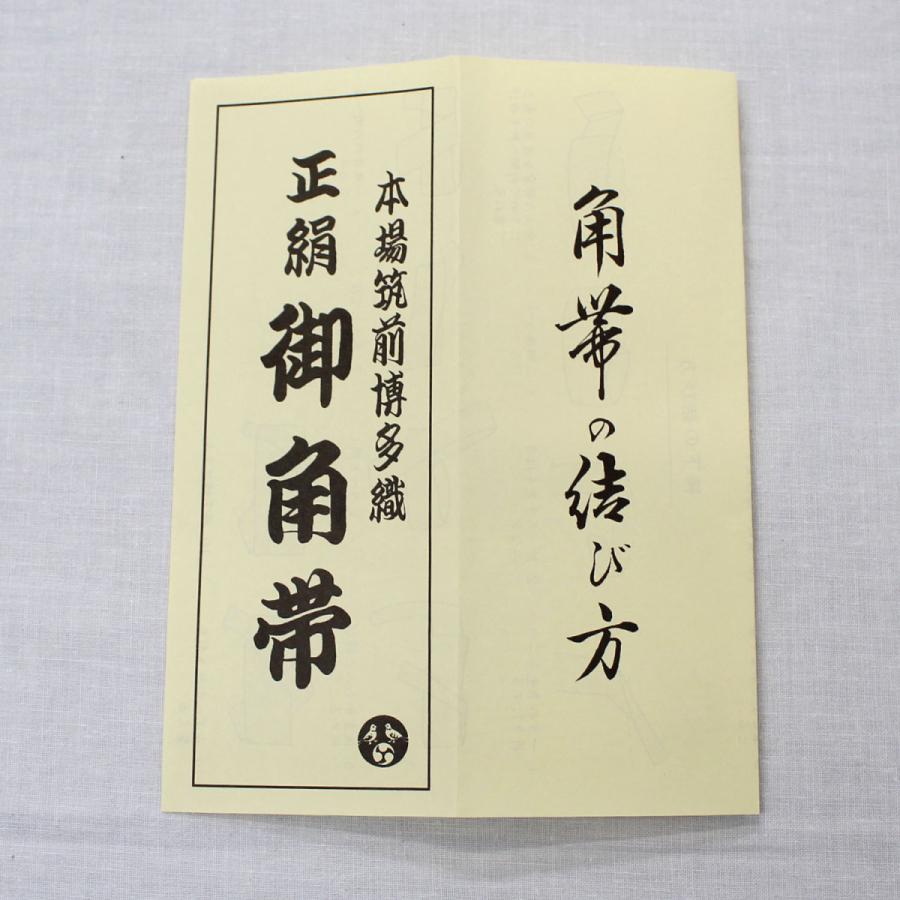 角帯の結び方
本場筑前博多織
正絹御角帯